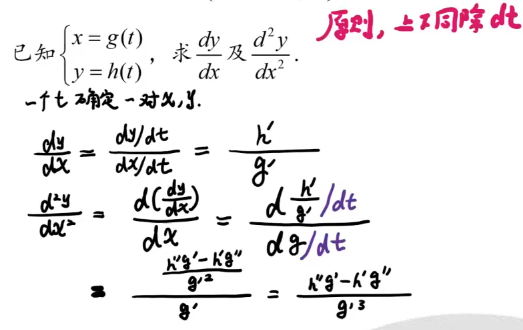 原则, 上下同除 dt
已知{x = g(t), y = h(t), 求 dy/dx 及 d²y/dx².
一个 t 确定一对 x, y.
dy/dx = (dy/dt)/(dx/dt) = h′/g′
d²y/dx² = d(dy/dx)/dx = (d h′/g′ /dt)/(dg/dt)
= ((h″g′−h′g″)/g′²)/g′ = (h″g′−h′g″)/g′³